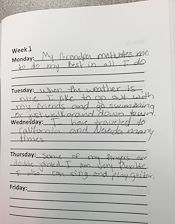 Week 1
Monday: My Grandpa motivates me
to do my best in all I do
Tuesday: when the weather is
nice I like to go out with
my friends and go swimming
or just walk around down town.
Wednesday: I have traveled to
California and Nevada many
times
Thursday: Some of my fingers are
double jointed. I am very flexible
I also can sing and play guitar.
Friday: